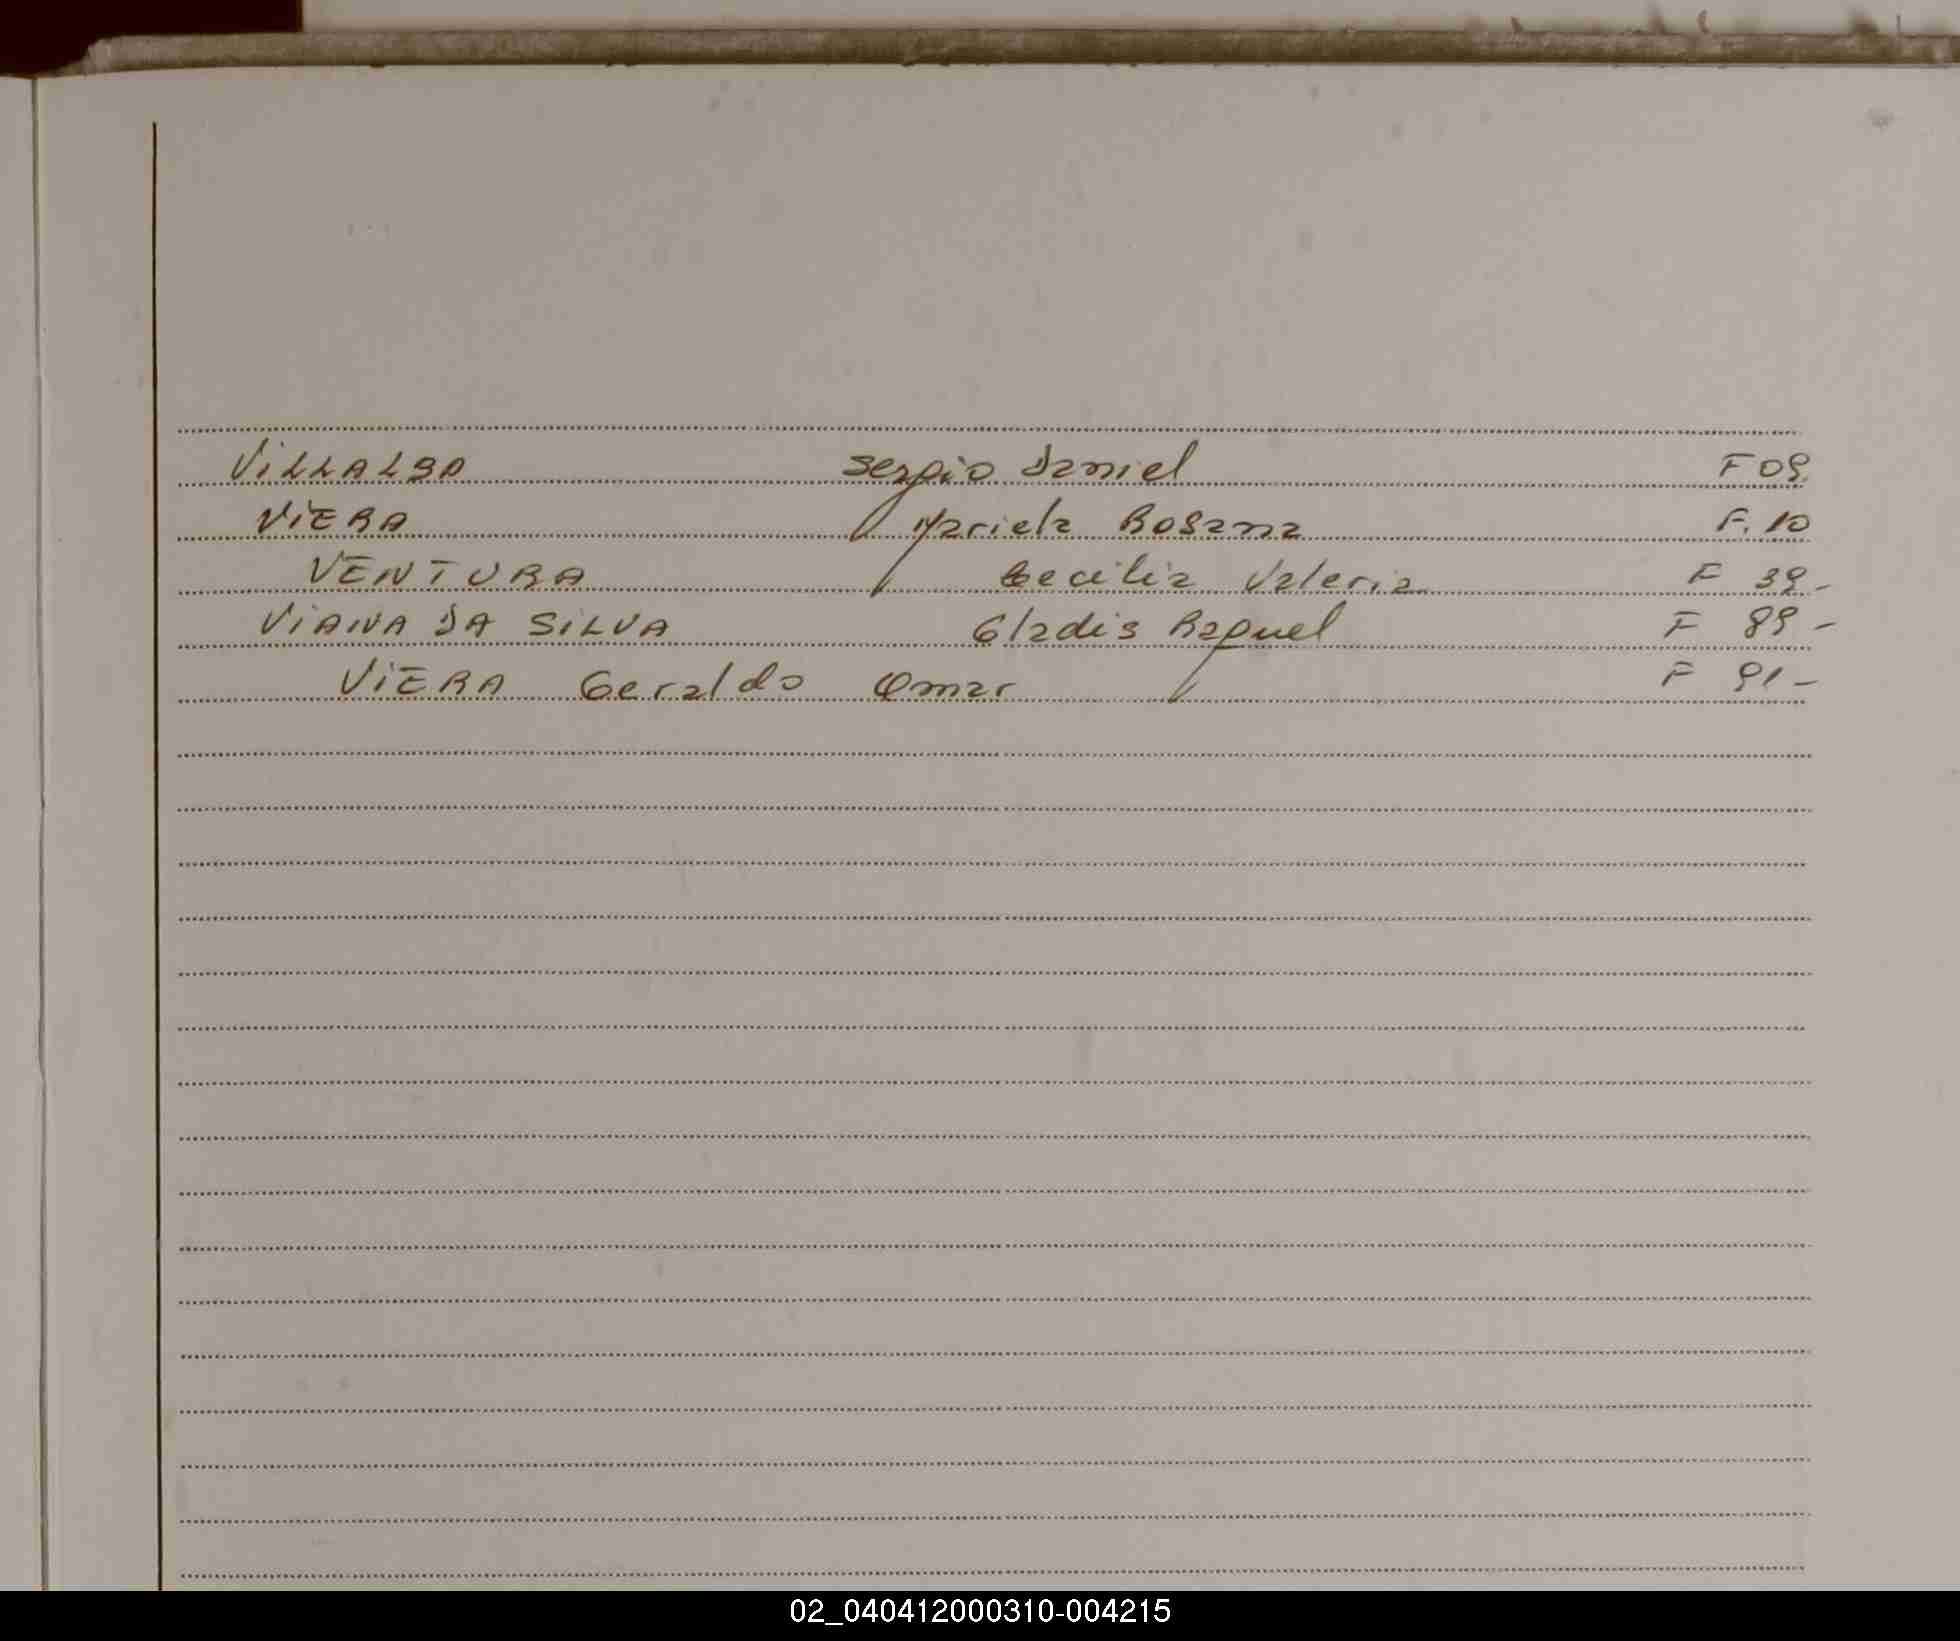 VILLALBA Sergio Daniel F 09.
VIERA Mariela Rosana F. 10
VENTURA Cecilia Valeria F 39-
VIANA DA SILVA Gladis Raquel F 89-
VIERA Geraldo Omar F 91-
02_040412000310-004215